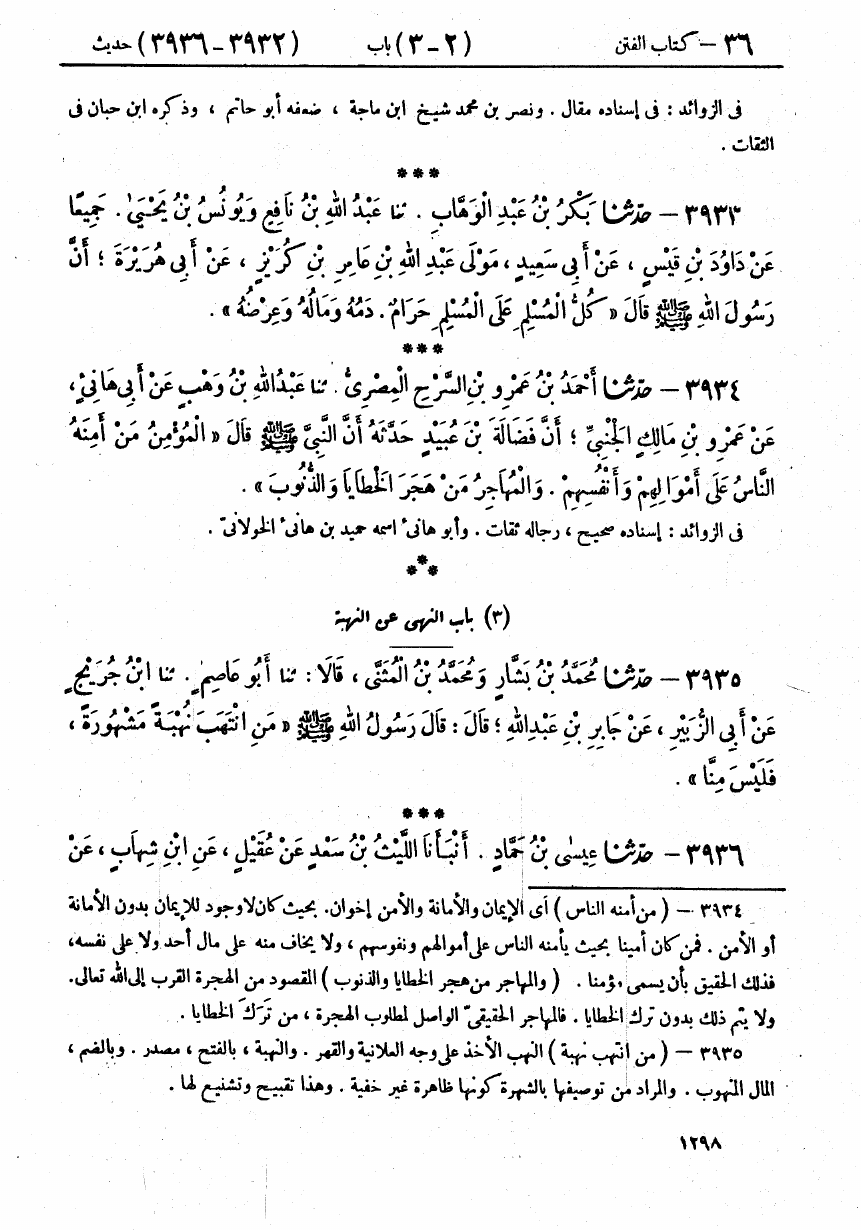 ٣٦ – كتاب الفتن (٢ – ٣) باب (٣٩٣٢ – ٣٩٣٦) حديث
فى الزوائد : فى إسناده مقال . ونصر بن محمد شيخ ابن ماجة ، ضعفه أبو حاتم ، وذكره ابن حبان فى
الثقات .
***
٣٩٣٣ – حدّثنا بَكْرُ بْنُ عَبْدِ الْوَهَّابِ . ثنا عَبْدُ اللهِ بْنُ نَافِعٍ وَيُونُسُ بْنُ يَحْيَىٰ . جَمِيعًا
عَنْ دَاوُدَ بْنِ قَيْسٍ ، عَنْ أَبِي سَعِيدٍ ، مَوْلَى عَبْدِ اللهِ بْنِ عَامِرِ بْنِ كُرَيْزٍ ، عَنْ أَبِي هُرَيْرَةَ ؛ أَنَّ
رَسُولَ اللهِ ﷺ قَالَ « كُلُّ الْمُسْلِمِ عَلَى الْمُسْلِمِ حَرَامٌ . دَمُهُ وَمَالُهُ وَعِرْضُهُ » .
***
٣٩٣٤ – حدّثنا أَحْمَدُ بْنُ عَمْرِو بْنِ السَّرْحِ الْمِصْرِىُّ . ثنا عَبْدُ اللهِ بْنُ وَهْبٍ عَنْ أَبِي هَانِئٍ ،
عَنْ عَمْرِو بْنِ مَالِكٍ الْجَنْبِيِّ ؛ أَنَّ فَضَالَةَ بْنَ عُبَيْدٍ حَدَّثَهُ أَنَّ النَّبِيَّ ﷺ قَالَ « الْمُؤْمِنُ مَنْ أَمِنَهُ
النَّاسُ عَلَى أَمْوَالِهِمْ وَأَنْفُسِهِمْ . وَالْمُهَاجِرُ مَنْ هَجَرَ الْخَطَايَا وَالذُّنُوبَ » .
فى الزوائد : إسناده صحيح ، رجاله ثقات . وأبو هانئ اسمه حميد بن هانئ الخولانىّ .
***
(٣) باب النهى عن النهبة
٣٩٣٥ – حدّثنا مُحَمَّدُ بْنُ بَشَّارٍ وَمُحَمَّدُ بْنُ الْمُثَنَّى ، قَالَا : ثنا أَبُو عَاصِمٍ . ثنا ابْنُ جُرَيْجٍ
عَنْ أَبِي الزُّبَيْرِ ، عَنْ جَابِرِ بْنِ عَبْدِ اللهِ ؛ قَالَ : قَالَ رَسُولُ اللهِ ﷺ « مَنِ انْتَهَبَ نُهْبَةً مَشْهُورَةً ،
فَلَيْسَ مِنَّا » .
***
٣٩٣٦ – حدّثنا عِيسٰى بْنُ حَمَّادٍ . أَنْبَأَنَا اللَّيْثُ بْنُ سَعْدٍ عَنْ عُقَيْلٍ ، عَنِ ابْنِ شِهَابٍ ، عَنْ
٣٩٣٤ – ( من أمنه الناس ) أى الإيمان والأمانة والأمن إخوان. بحيث كان لا وجود للإيمان بدون الأمانة
أو الأمن . فمن كان أمينا بحيث يأمنه الناس على أموالهم ونفوسهم ، ولا يخاف منه على مال أحد ولا على نفسه،
فذلك الحقيق بأن يسمى مؤمنا . ( والمهاجر من هجر الخطايا والذنوب ) المقصود من الهجرة القرب إلى الله تعالى.
ولا يتم ذلك بدون ترك الخطايا . فالمهاجر الحقيقىّ الواصل لمطلوب الهجرة ، من تَرَكَ الخطايا .
٣٩٣٥ – ( من انتهب نهبة ) النهب الأخذ على وجه العلانية والقهر . والنهبة ، بالفتح ، مصدر . وبالضم ،
المال المنهوب . والمراد من توصيفها بالشهرة كونها ظاهرة غير خفية . وهذا تقبيح وتشنيع لها .
١٢٩٨